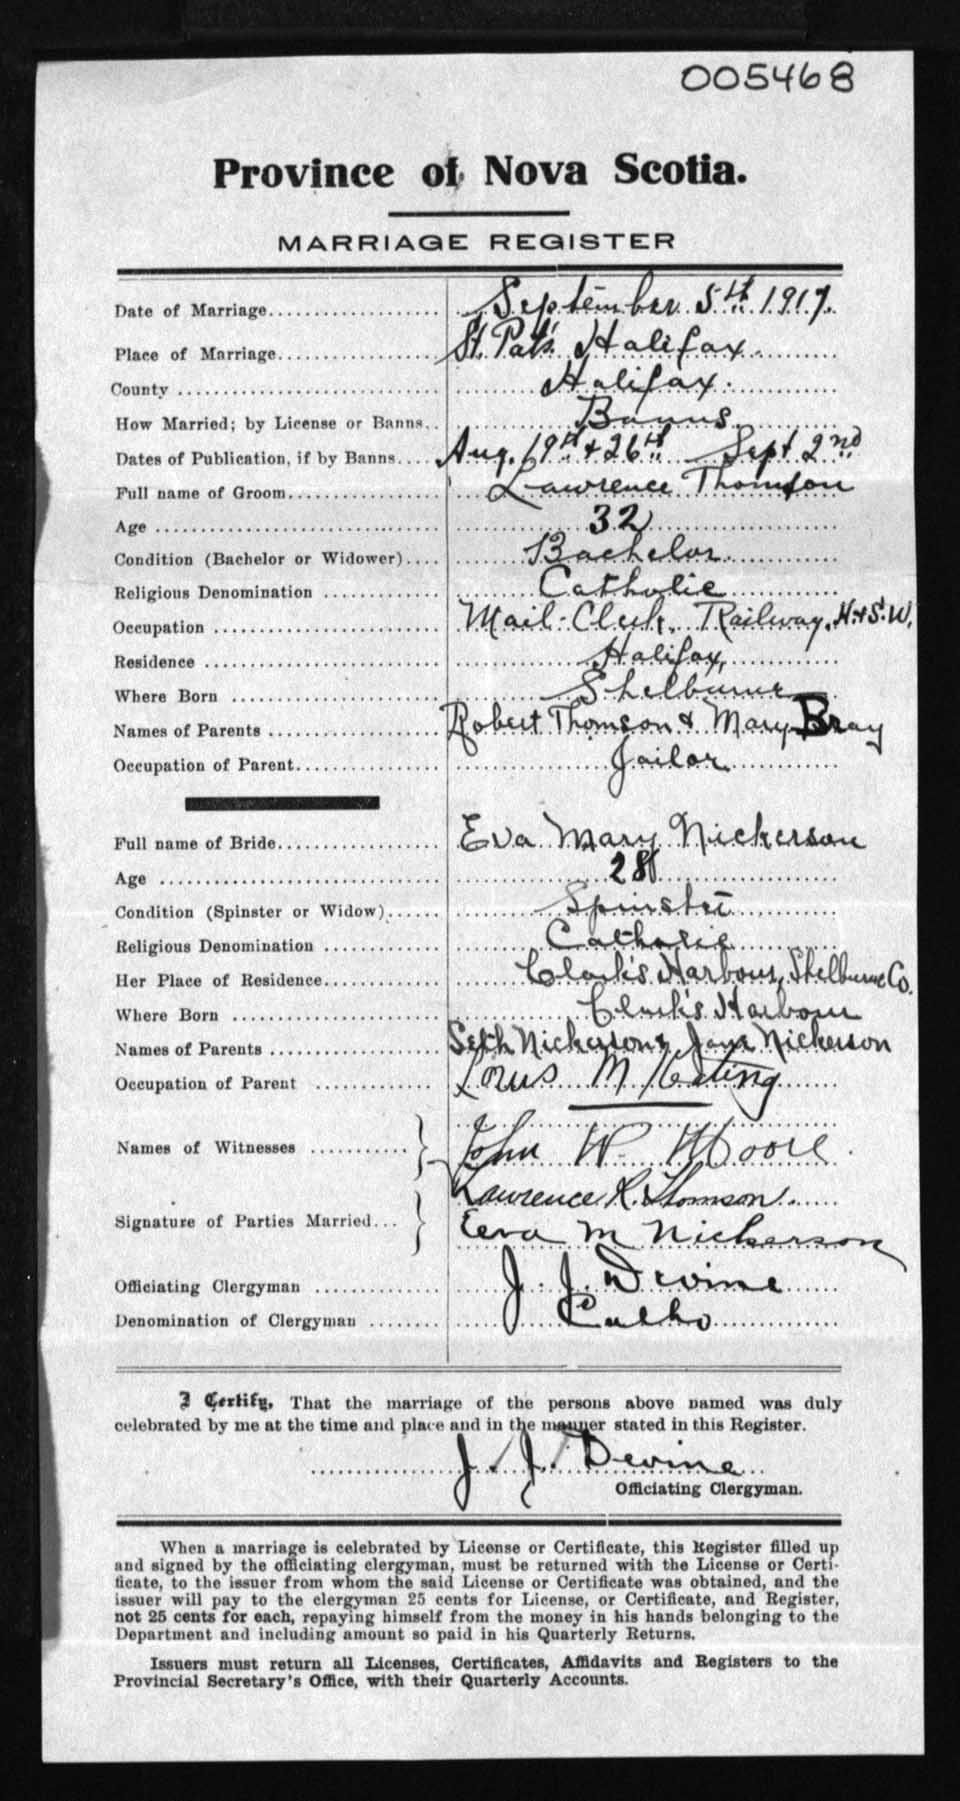 005468
Province of Nova Scotia.
MARRIAGE REGISTER
Date of Marriage.................... September 5th 1917.
Place of Marriage................... St. Pat's. Halifax.
County ............................ Halifax.
How Married; by License or Banns.. Banns.
Dates of Publication, if by Banns.... Aug. 19th & 26th Sept 2nd
Full name of Groom.................. Lawrence Thomson
Age ............................... 32
Condition (Bachelor or Widower).... Bachelor.
Religious Denomination ............ Catholic
Occupation ........................ Mail-Clerk. Railway. H.&S.W.
Residence ......................... Halifax,
Where Born ....................... Shelburne
Names of Parents .................. Robert Thomson & Mary Bray
Occupation of Parent............... Jailor.
Full name of Bride.................. Eva Mary Nickerson
Age ............................... 28
Condition (Spinster or Widow)...... Spinster
Religious Denomination ............ Catholic
Her Place of Residence.............. Clark's Harbour, Shelburne Co.
Where Born ....................... Clark's Harbour
Names of Parents .................. Seth Nickerson & Jane Nickerson
Occupation of Parent ............. M Keating
Names of Witnesses ........... John W. Moore.
Lawrence R. Thomson.
Signature of Parties Married... Eva M Nickerson
Officiating Clergyman ............. J. J. Devine
Denomination of Clergyman ........ Catho
I Certify, That the marriage of the persons above named was duly
celebrated by me at the time and place and in the manner stated in this Register.
J. J. Devine
Officiating Clergyman.
When a marriage is celebrated by License or Certificate, this Register filled up
and signed by the officiating clergyman, must be returned with the License or Certi-
ficate, to the issuer from whom the said License or Certificate was obtained, and the
issuer will pay to the clergyman 25 cents for License, or Certificate, and Register,
not 25 cents for each, repaying himself from the money in his hands belonging to the
Department and including amount so paid in his Quarterly Returns.
Issuers must return all Licenses, Certificates, Affidavits and Registers to the
Provincial Secretary's Office, with their Quarterly Accounts.